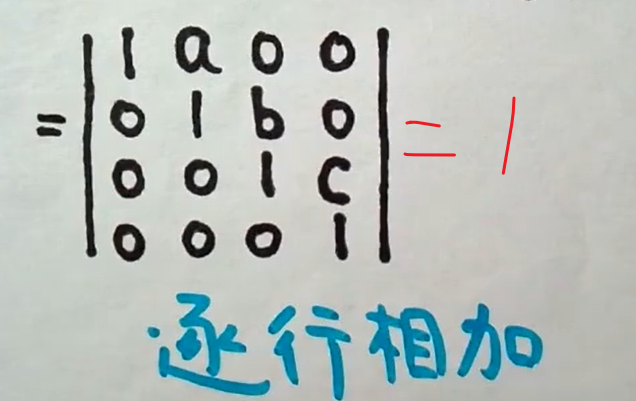 1 a 0 0
0 1 b 0
= = 1
0 0 1 c
0 0 0 1
逐行相加